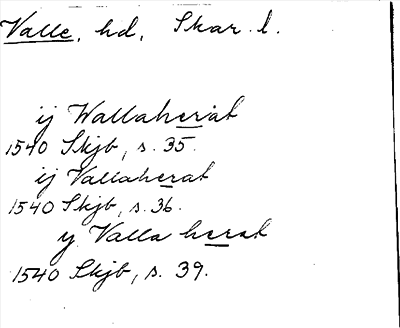 Valle, hd, Skar. l.
ij Wallaherat
1540 Skjb, s. 35.
ij Vallaherat
1540 Skjb, s. 36.
y Valla herat
1540 Skjb, s. 39.